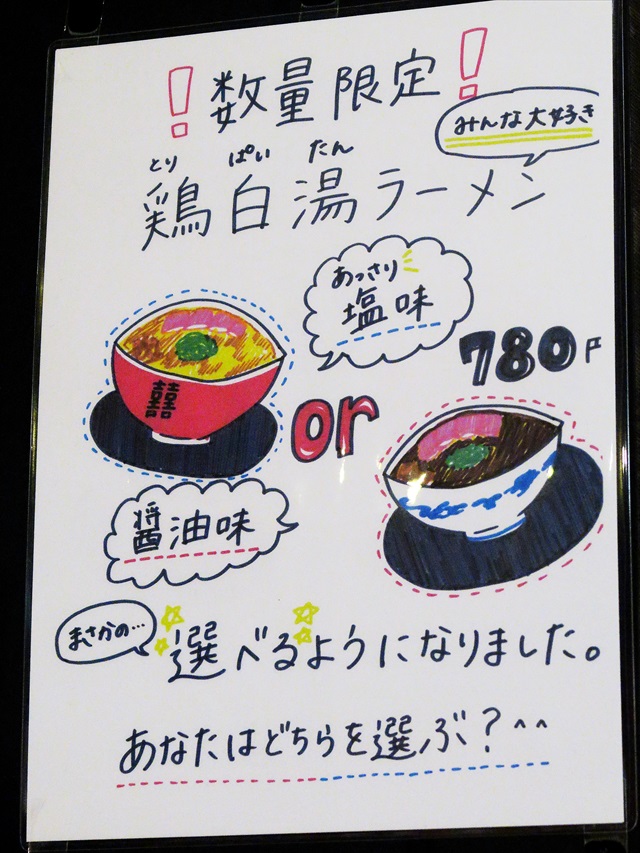 !数量限定!
みんな大好き
とり ぱい たん
鶏白湯ラーメン
あっさり
塩味
780円
囍
or
醤油味
まさかの…
選べるようになりました。
あなたはどちらを選ぶ?^^